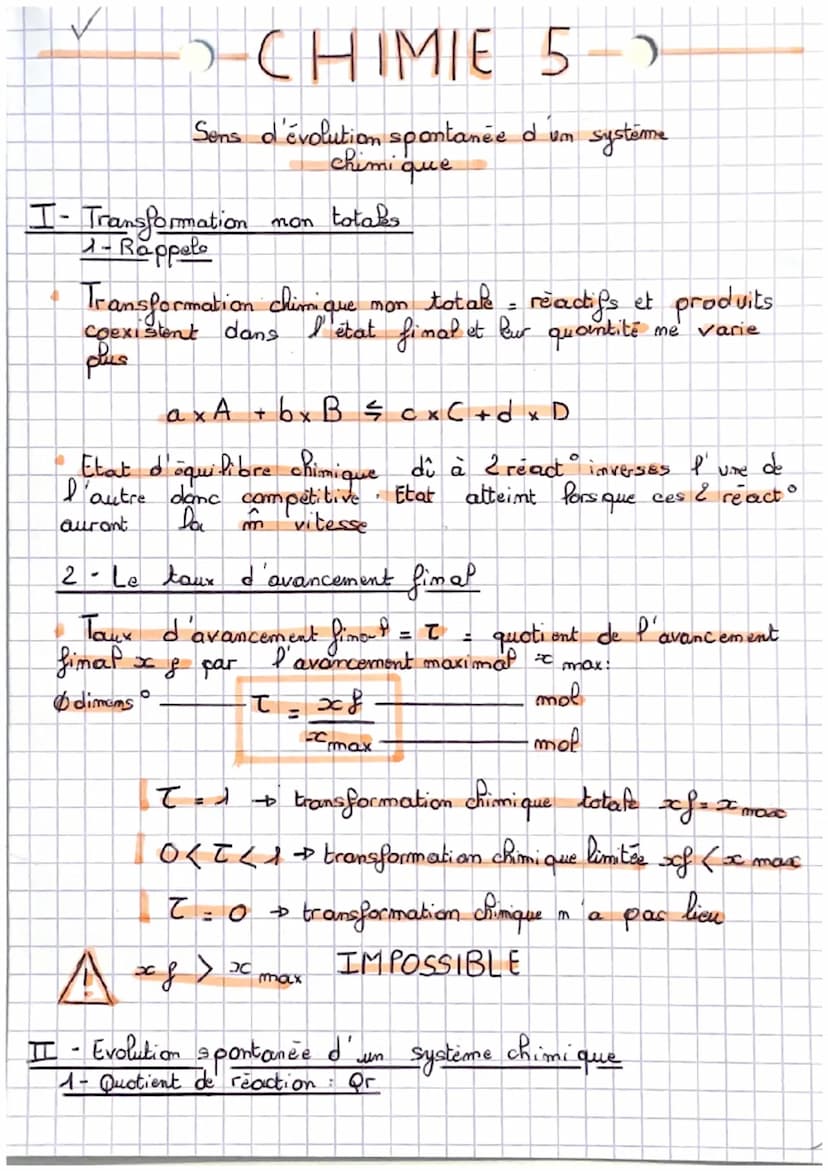 CHIMIE 5
Sens d'évolution spontanée d'un système
chimique
I - Transformation non totales
1 - Rappels
• Transformation chimique non totale = réactifs et produits
coexistent dans l'état final et leur quantité ne varie
plus
a x A + b x B ⇆ c x C + d x D
• Etat d'équilibre chimique dû à 2 réact° inverses l'une de
l'autre donc compétitive. Etat atteint lorsque ces 2 réact°
auront la m̂ vitesse
2 - Le taux d'avancement final
• Taux d'avancement final = τ = quotient de l'avancement
final xf par l'avancement maximal x max :
∅ dimens° τ = xf / xmax mol
mol
τ = 1 → transformation chimique totale xf = x max
0 < τ < 1 → transformation chimique limitée xf < x max
τ = 0 → transformation chimique n'a pas lieu
⚠ xf > x max IMPOSSIBLE
II - Evolution spontanée d'un système chimique
1 - Quotient de réaction : Qr